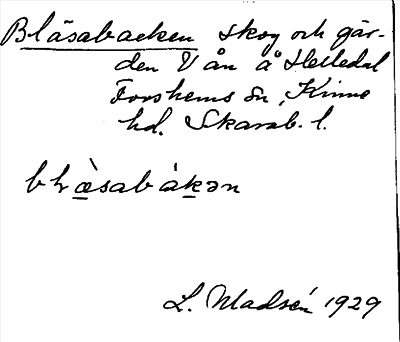 Bläsabacken skog och går-
den V ån å Helledal
Forshems sn, Kinne
hd. Skarab. l.
bl æ̀sabákən
L. Madsén 1929